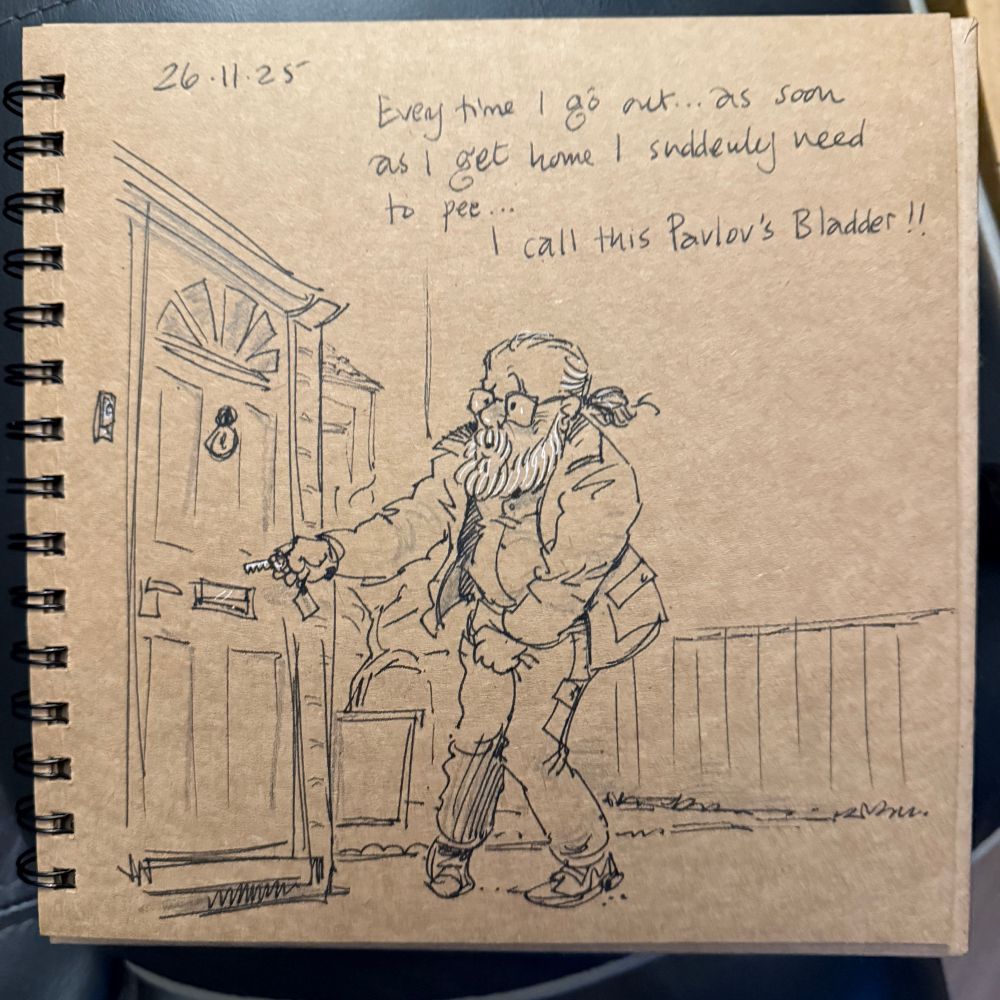 26.11.25
Every time I go out... as soon
as I get home I suddenly need
to pee...
I call this Pavlov's Bladder!!